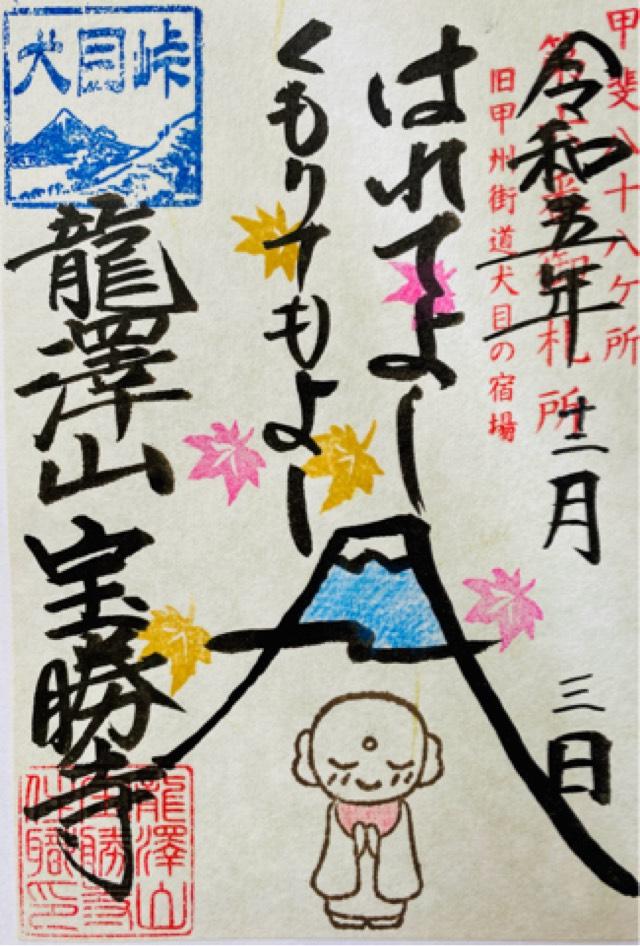 甲斐八十八ケ所
御札所
旧甲州街道犬目の宿場
令和五年十二月三日
はれてよし
くもりてもよし
犬目峠
龍澤山宝勝寺
龍澤山
宝勝寺
住職印